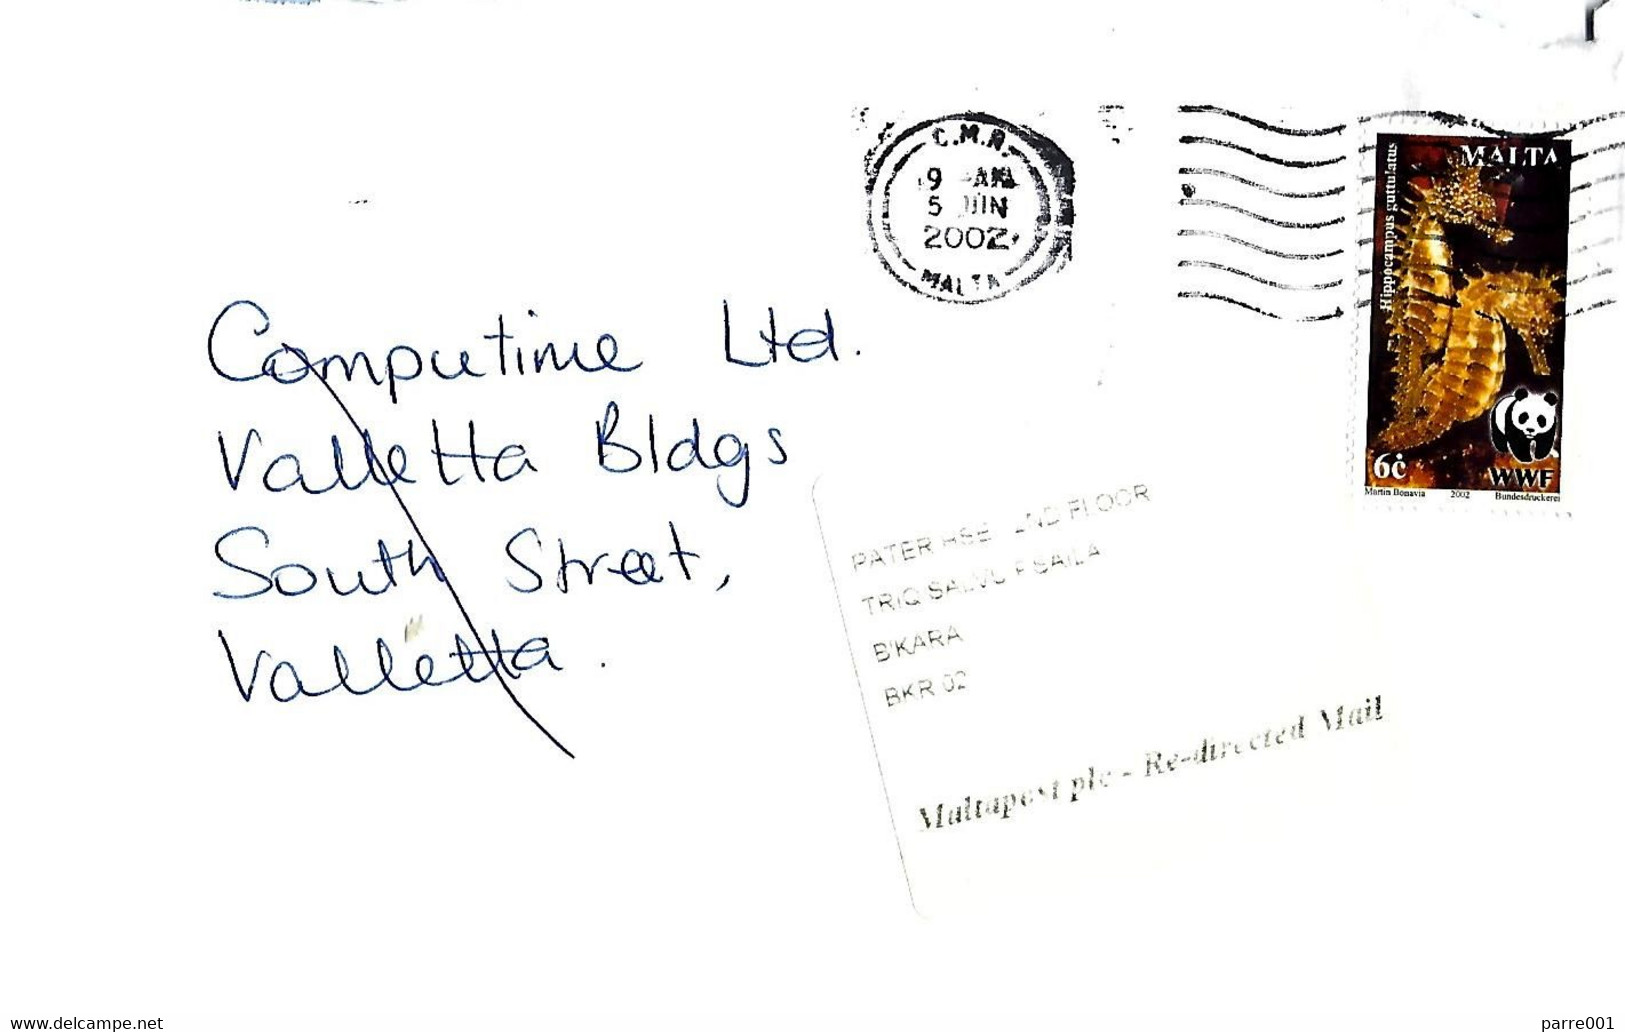 C.M.R.
9 AM
5 JUN
2002
MALTA
MALTA
Hippocampus guttulatus
6ċ
WWF
Martin Bonavia 2002 Bundesdruckerei
Computime Ltd.
Valletta Bldgs
South Street,
Valletta.
PATER HSE 2ND FLOOR
TRIQ SALVU PSAILA
B'KARA
BKR 02
Maltapost plc - Re-directed Mail
www.delcampe.net
parre001